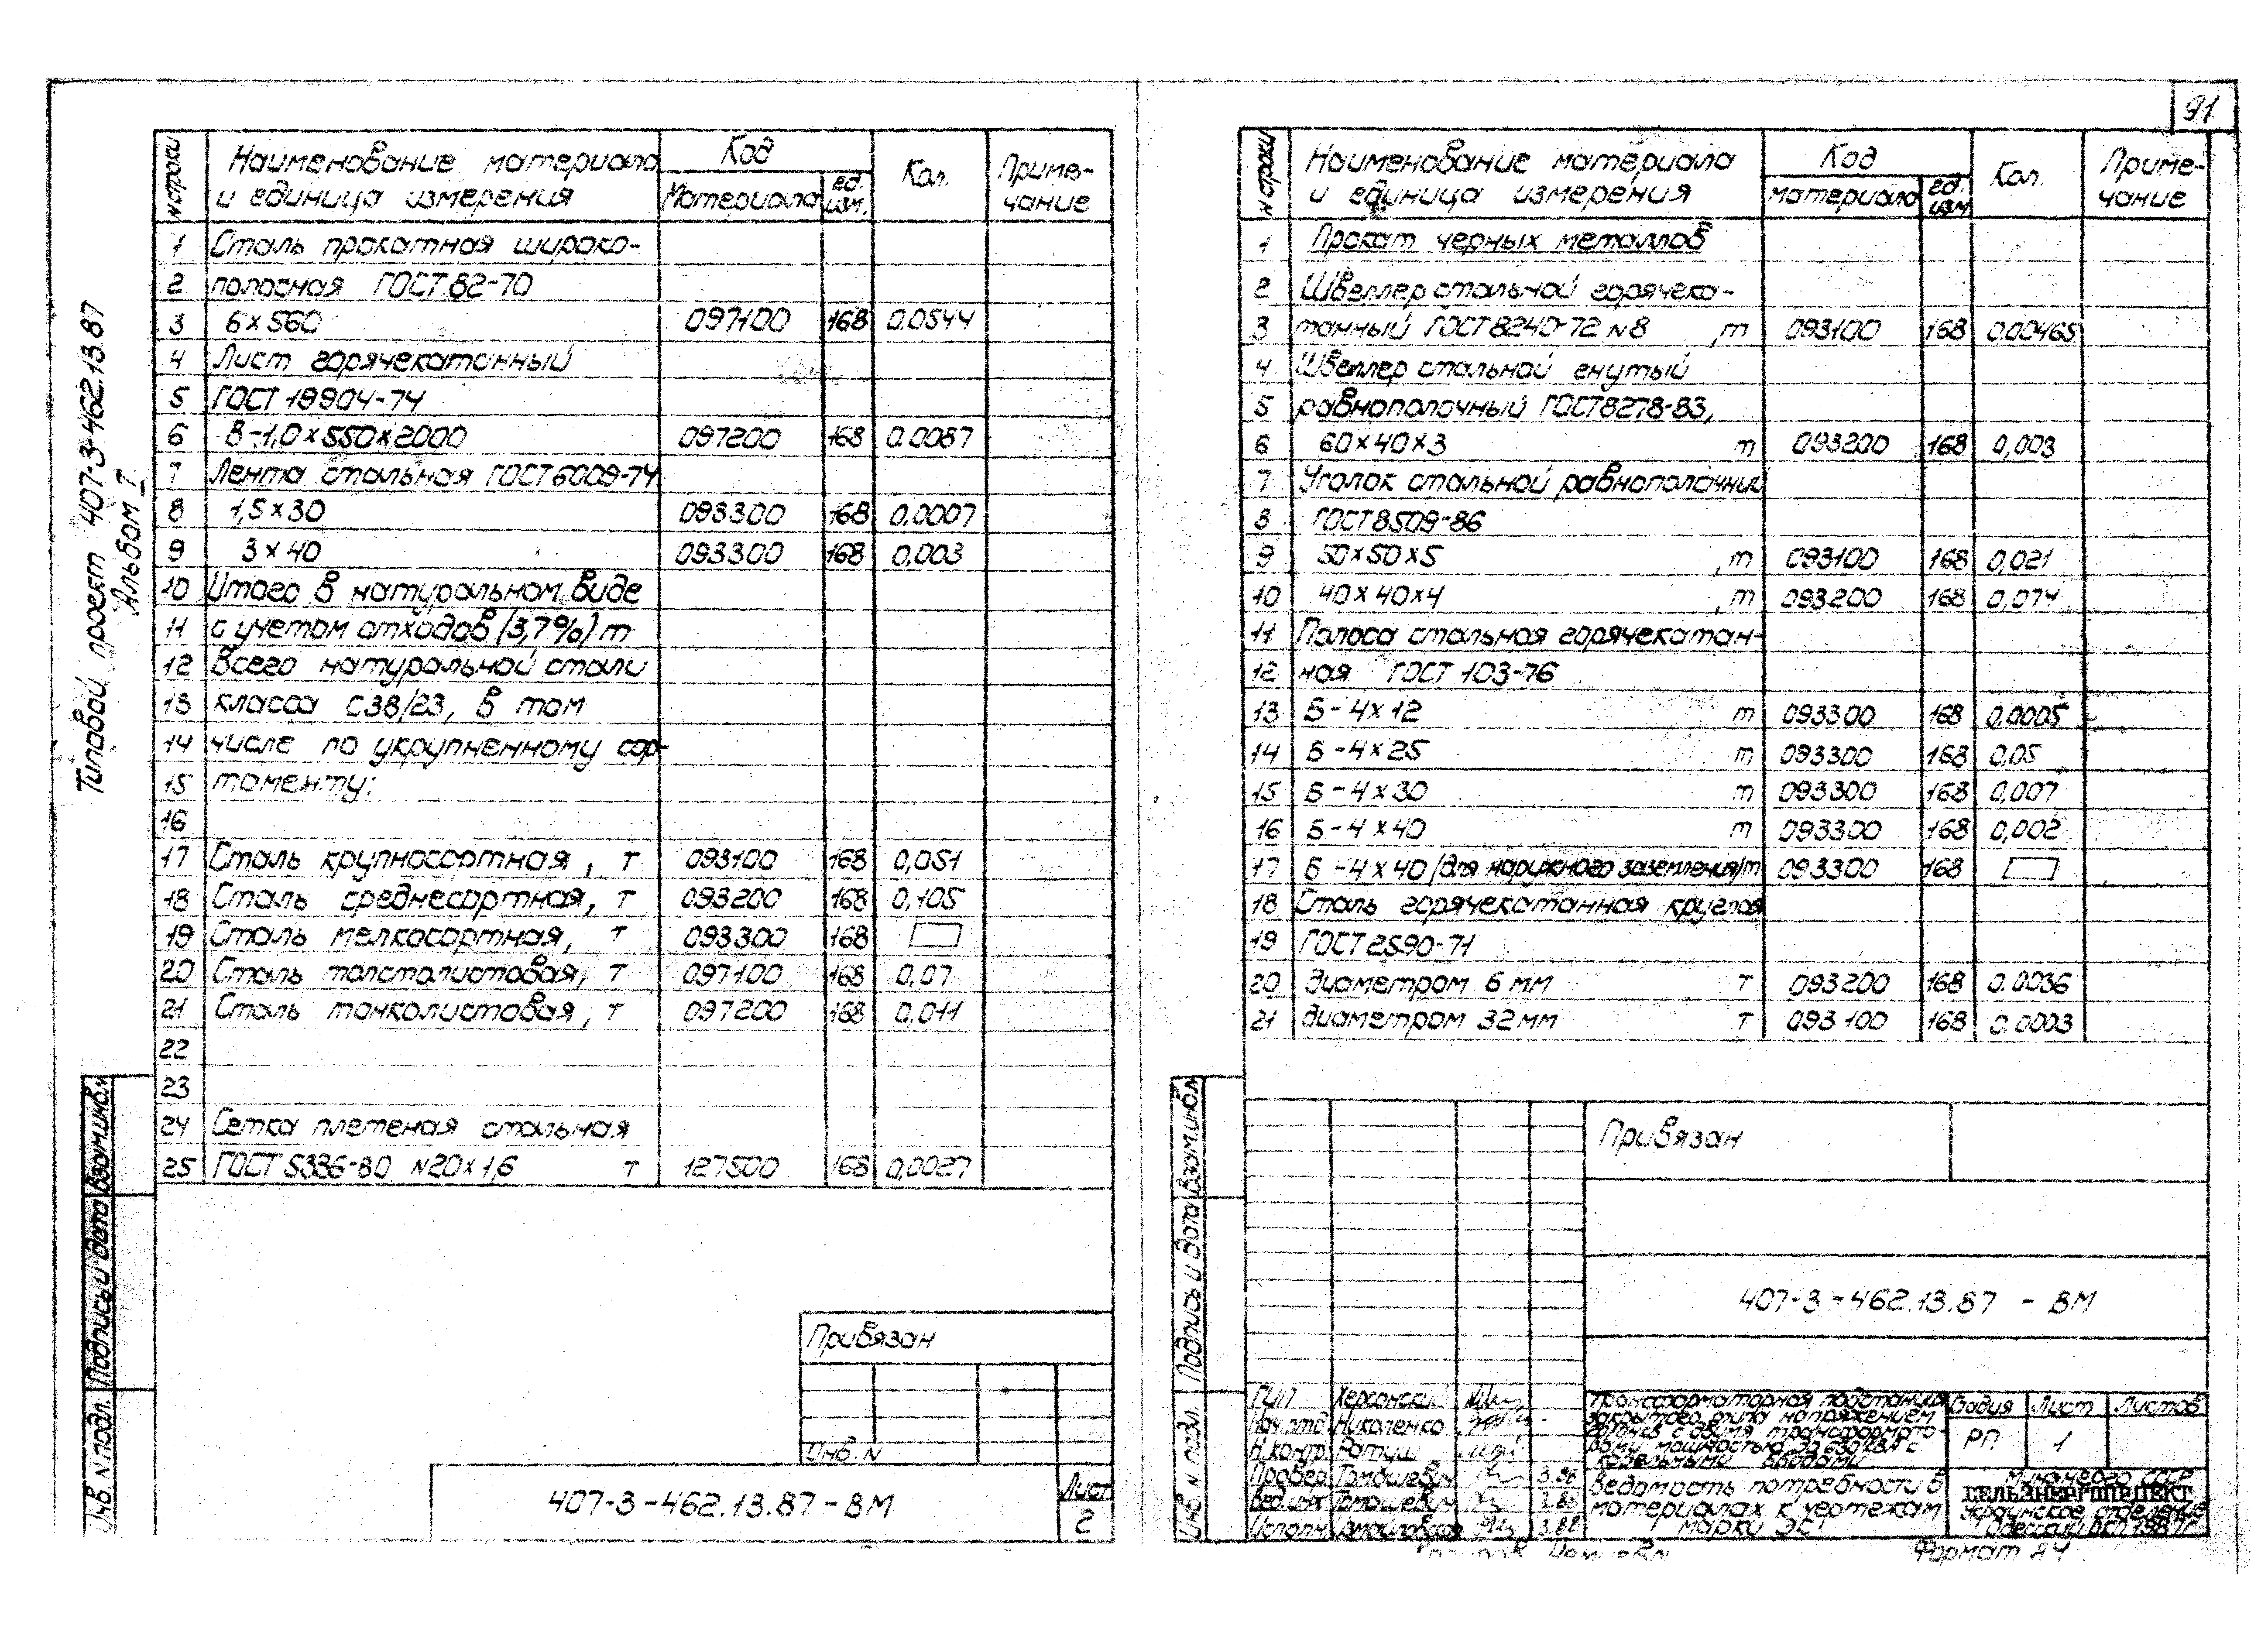 91
Типовой проект 407-3-462.13.87
Альбом 7
N строки | Наименование материала и единица измерения | Код материала | Код ед. изм. | Кол. | Примечание
1 Сталь прокатная широко-
2 полосная ГОСТ 82-70
3 6×560 097100 168 0.0544
4 Лист горячекатанный
5 ГОСТ 19904-74
6 В-1,0×550×2000 097200 168 0.0087
7 Лента стальная ГОСТ 6009-74
8 1,5×30 093300 168 0,0007
9 3×40 093300 168 0,003
10 Итого в натуральном виде
11 с учетом отходов (3,7%) т
12 Всего натуральной стали
13 класса С38/23, в том
14 числе по укрупненному сор-
15 таменту:
16
17 Сталь крупносортная, т 093100 168 0,051
18 Сталь среднесортная, т 093200 168 0,105
19 Сталь мелкосортная, т 093300 168
20 Сталь толстолистовая, т 097100 168 0,07
21 Сталь тонколистовая, т 097200 168 0,011
22
23
24 Сетка плетеная стальная
25 ГОСТ 5336-80 N20×1,6 т 127500 168 0,0027
Привязан
Инв. N
407-3-462.13.87-ВМ
Лист
2
Инв. N подл. Подпись и дата Взам.инв.N
N строки | Наименование материала и единица измерения | Код материала | Код ед. изм | Кол. | Примечание
1 Прокат черных металлов
2 Швеллер стальной горячека-
3 танный ГОСТ 8240-72 N8 ,т 093100 168 0.00465
4 Швеллер стальной гнутый
5 равнополочный ГОСТ 8278-83,
6 60×40×3 т 093200 168 0,003
7 Уголок стальной равнополочный
8 ГОСТ 8509-86
9 50×50×5 ,т 093100 168 0,021
10 40×40×4 ,т 093200 168 0,074
11 Полоса стальная горячекатан-
12 ная ГОСТ 103-76
13 Б-4×12 т 093300 168 0.0005
14 Б-4×25 т 093300 168 0,05
15 Б-4×30 т 093300 168 0,007
16 Б-4×40 т 093300 168 0,002
17 Б-4×40 (для наружного заземления) т 093300 168
18 Сталь горячекатанная круглая
19 ГОСТ 2590-71
20 диаметром 6 мм т 093200 168 0.0036
21 диаметром 32 мм т 093100 168 0.0003
Инв. N подл. Подпись и дата Взам.инв.N
Привязан
407-3-462.13.87 - ВМ
ГИП Херсонский
Нач.отд Николенко
Н.контр. Ратуш
Провер. Томашевич 3.88
Вед.инж Томашевич 3.88
Исполн. 3.88
Трансформаторная подстанция
закрытого типа напряжением
с двумя трансформато-
рами мощностью до 630 кВА с
кабельными вводами
Стадия Лист Листов
РП 1
Ведомость потребности в
материалах к чертежам
марки ЭС1
Минэнерго СССР
СЕЛЬЭНЕРГОПРОЕКТ
Украинское отделение
1987г.
Формат А4